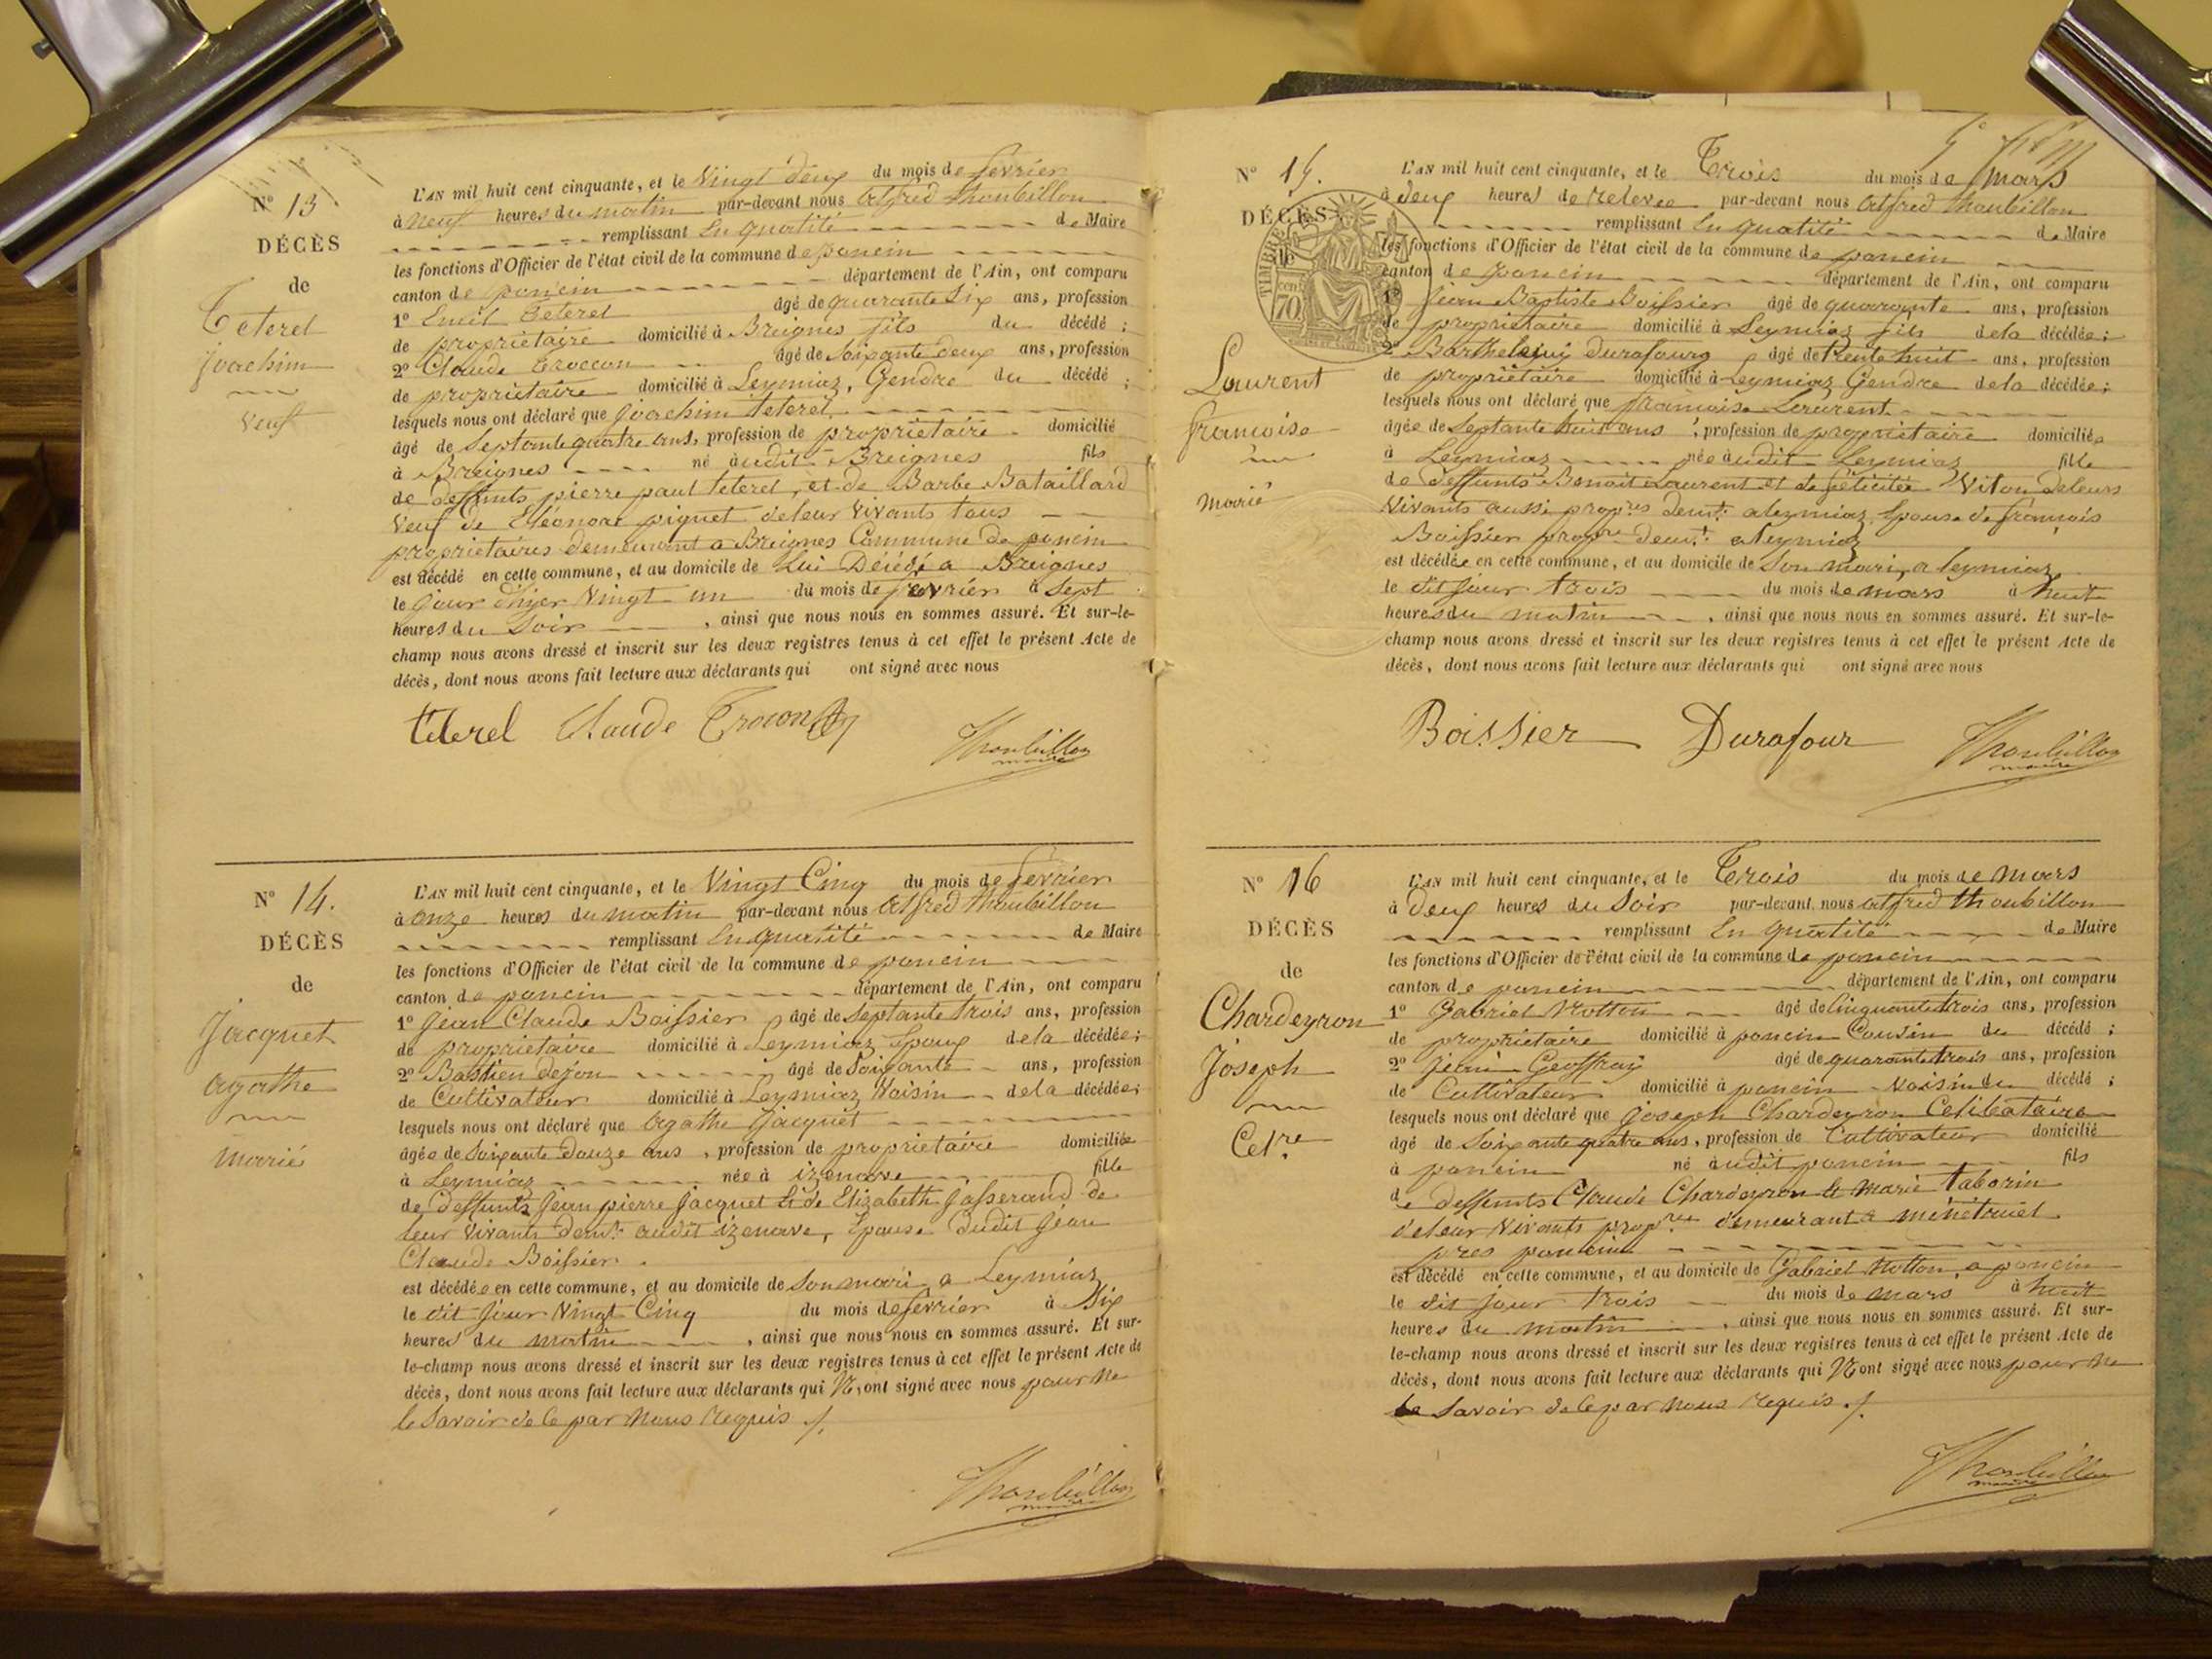 N° 13
DÉCÈS
de
Teterel
joachim
veuf
L'AN mil huit cent cinquante, et le Vingt deux du mois de fevrier
à neuf heures du matin par-devant nous Alfred thoubillon
remplissant En qualité de Maire
les fonctions d'Officier de l'état civil de la commune de poncin
canton de poncin département de l'Ain, ont comparu
1° Emil Teterel âgé de quarante Six ans, profession
de propriétaire domicilié à Breignes fils du décédé ;
2° Claude Troccon âgé de Soixante deux ans, profession
de propriétaire domicilié à Leymiaz, Gendre du décédé ;
lesquels nous ont déclaré que joachim teterel
âgé de Septante quatre ans, profession de propriétaire domicilié
à Breignes né audit Breignes fils
de deffunts pierre paul teterel, et de Barbe Bataillard
veuf de Eléonore piquet deleur vivants tous
propriétaires demeurant a Breignes Commune de poncin
est décédé en cette commune, et au domicile de Lui Décédé a Breignes
le jour d'hyer Vingt un du mois de fevrier à Sept
heures du Soir , ainsi que nous nous en sommes assuré. Et sur-le-
champ nous avons dressé et inscrit sur les deux registres tenus à cet effet le présent Acte de
décès, dont nous avons fait lecture aux déclarants qui ont signé avec nous
teterel Claude Trocon
Thoubillon
maire
N° 14.
DÉCÈS
de
Jacquet
agathe
marié
L'AN mil huit cent cinquante, et le Vingt Cinq du mois de fevrier
à onze heures du matin par-devant nous Alfred thoubillon
remplissant En qualité de Maire
les fonctions d'Officier de l'état civil de la commune de poncin
canton de poncin département de l'Ain, ont comparu
1° Jean Claude Boissier âgé de Septante trois ans, profession
de propriétaire domicilié à Leymiaz Epoux dela décédée ;
2° Bastien dezon âgé de Soixante ans, profession
de Cultivateur domicilié à Leymiaz Voisin dela décédée ;
lesquels nous ont déclaré que Agathe Jacquet
âgée de Soixante Douze ans , profession de propriétaire domiciliée
à Leymiaz née à izenave fille
de Deffunts Jean pierre Jacquet et de Elizabeth Josserand de
leur vivants demt audit izenave, Epouse dudit Jean
Claude Boissier.
est décédée en cette commune, et au domicile de Son mari a Leymiaz
le dit jour Vingt Cinq du mois de fevrier à Dix
heures du matin , ainsi que nous nous en sommes assuré. Et sur-
le-champ nous avons dressé et inscrit sur les deux registres tenus à cet effet le présent Acte de
décès, dont nous avons fait lecture aux déclarants qui N'ont signé avec nous pour ne
le Savoir de Ce par Nous Requis /.
Thoubillon
maire
N° 15.
DÉCÈS
de
TIMBRE
70
Laurent
francoise
marié
L'AN mil huit cent cinquante, et le Trois du mois de mars
à deux heures de relevee par-devant nous Alfred thoubillon
remplissant En qualité de Maire
les fonctions d'Officier de l'état civil de la commune de poncin
canton de poncin département de l'Ain, ont comparu
1° Jean Baptiste Boissier âgé de quarante ans, profession
de propriétaire domicilié à Leymiaz fils dela décédée ;
2° Barthelemy Durafourg âgé de trente huit ans, profession
de propriétaire domicilié à Leymiaz Gendre dela décédée ;
lesquels nous ont déclaré que francoise Laurent
âgée de Septante huit ans , profession de propriétaire domiciliée
à Leymiaz née audit Leymiaz fille
de deffunts Benoit Laurent et de félicitée Viton deleurs
vivants aussi propres demt a leymiaz Epouse de françois
Boissier propre demt a leymiaz
est décédée en cette commune, et au domicile de Son mari, a leymiaz
le dit jour trois du mois de mars à huit
heures du matin , ainsi que nous nous en sommes assuré. Et sur-le-
champ nous avons dressé et inscrit sur les deux registres tenus à cet effet le présent Acte de
décès, dont nous avons fait lecture aux déclarants qui ont signé avec nous
Boissier Durafour
Thoubillon
maire
N° 16
DÉCÈS
de
Chardeyron
Joseph
Celre
L'AN mil huit cent cinquante, et le Trois du mois de mars
à Deux heures du Soir par-devant nous Alfred thoubillon
remplissant En qualité de Maire
les fonctions d'Officier de l'état civil de la commune de poncin
canton de poncin département de l'Ain, ont comparu
1° Gabriel Motton âgé de Cinquante trois ans, profession
de propriétaire domicilié à poncin Cousin du décédé ;
2° Jean Geoffray âgé de quarante trois ans, profession
de Cultivateur domicilié à poncin Voisin du décédé ;
lesquels nous ont déclaré que joseph Chardeyron Celibataire
âgé de Soixante quatre ans, profession de Cultivateur domicilié
à poncin né audit poncin fils
de deffunts Claude Chardeyron et marie taborin
deleur Vivants propres demeurant a ménétruel
pres poncin
est décédé en cette commune, et au domicile de Gabriel Motton, a poncin
le dit jour trois du mois de mars à huit
heures du matin , ainsi que nous nous en sommes assuré. Et sur-
le-champ nous avons dressé et inscrit sur les deux registres tenus à cet effet le présent Acte de
décès, dont nous avons fait lecture aux déclarants qui N'ont signé avec nous pour ne
le Savoir de Ce par nous requis. /.
Thoubillon
maire